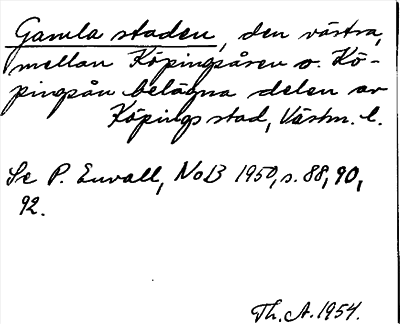 Gamla staden, den västra,
mellan Köpingsåsen o. Kö-
pingsån belägna delen av
Köpings stad, Västm. l.
Se P. Envall, NoB 1950, s. 88, 90,
92.
Th. A. 1954.